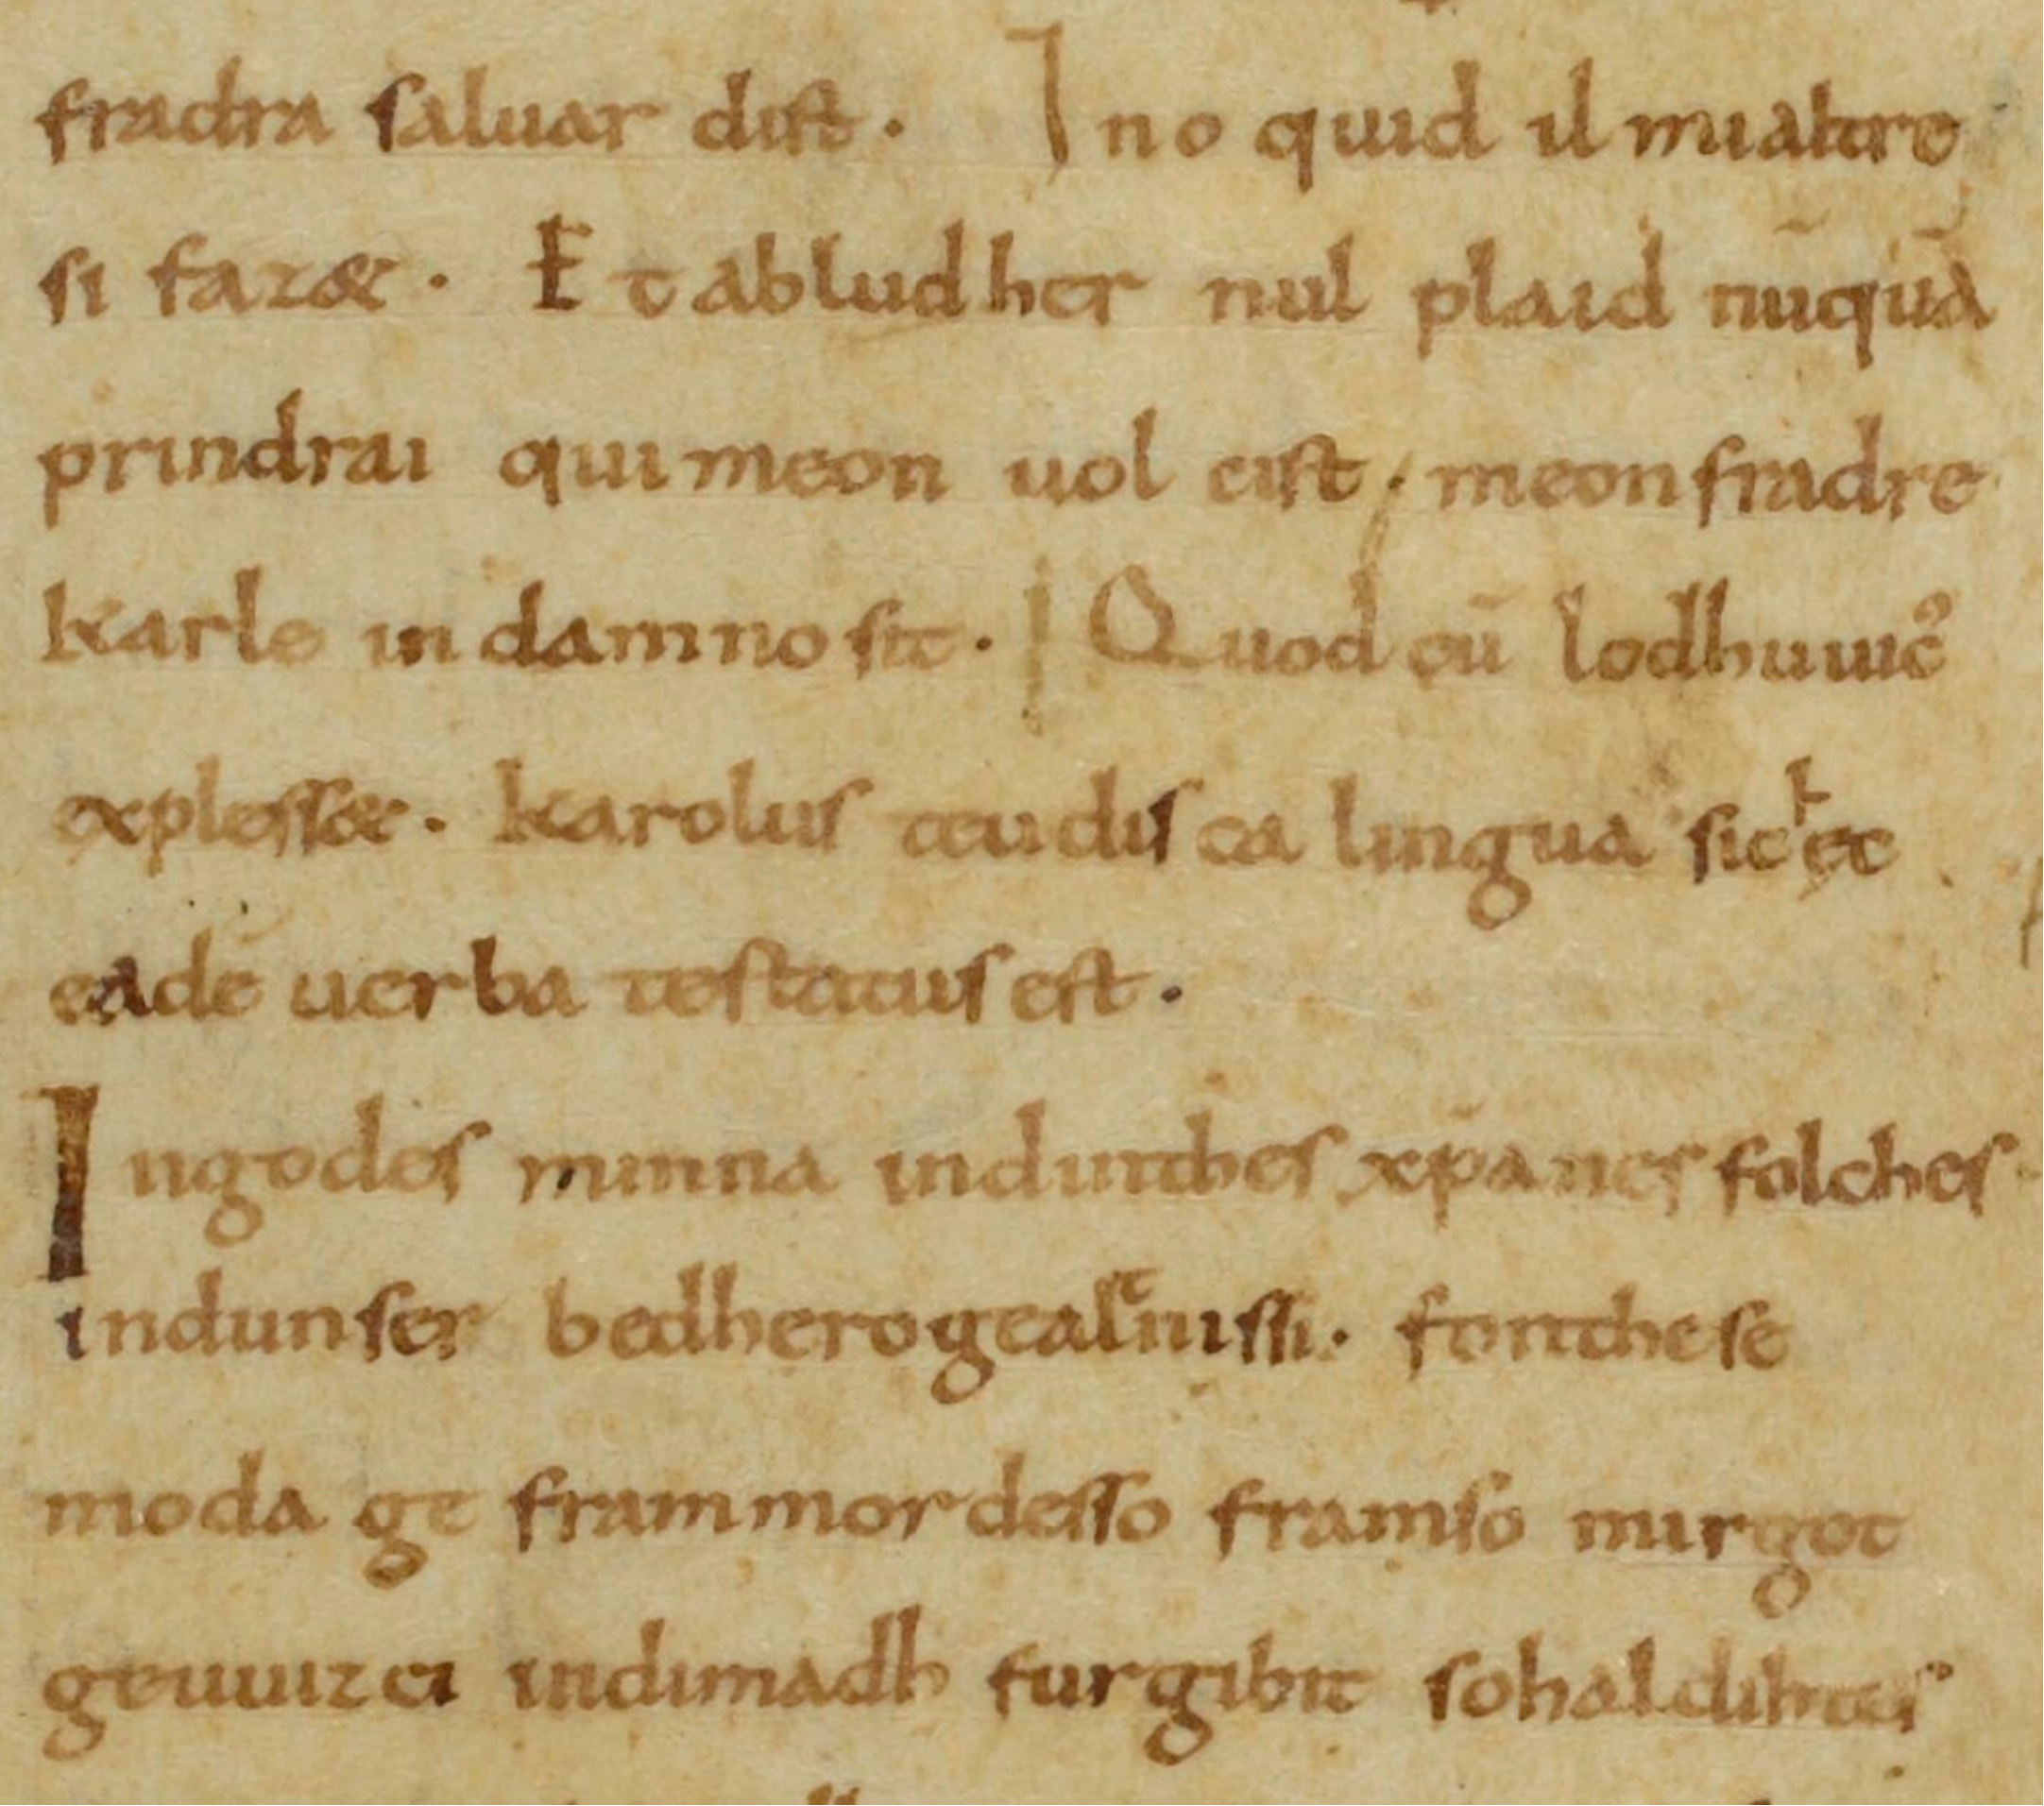 fradra saluar dist. In o quid il mi altre
si fazæt. Et abludher nul plaid nūquā
prindrai qui meon uol cist. meon fradre
karle in damno sit. Quod cū lodhuuic᷒
explesset. karolus teudisca lingua sic hec
eadē uerba testatus est.
Ingodes minna indinthes xp̄anes folches
indunser bedhero gealtnissi. fonthese
moda ge frammordesso framso mirgot
geuuizci indimadh furgibit sohaldihtes